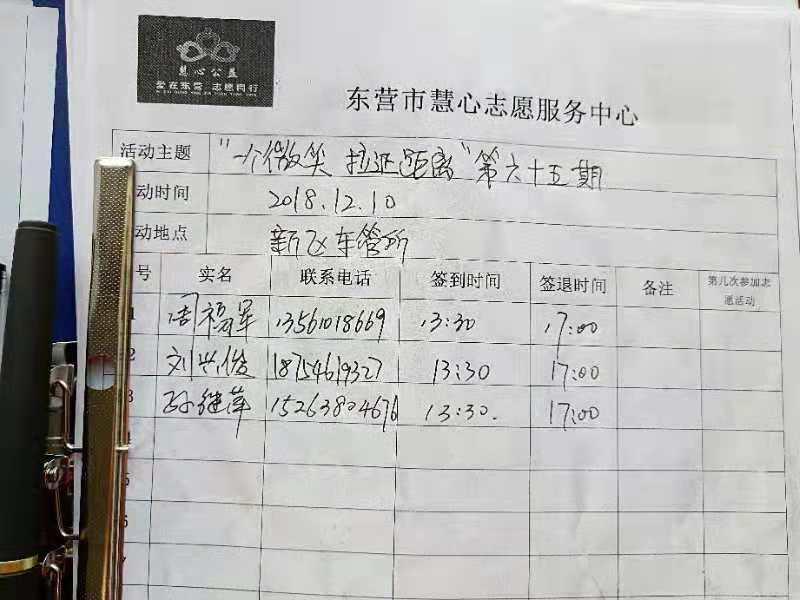 慧心公益
爱在东营 志愿同行
东营市慧心志愿服务中心
活动主题 "一个微笑 拉近距离"第六十五期
动时间 2018.12.10
动地点 新区车管所
号 实名 联系电话 签到时间 签退时间 备注 第几次参加志愿活动
1 周福军 13561018669 13:30 17:00
2 刘兴俊 18754619327 13:30 17:00
3 孙继萍 15263804676 13:30. 17:00